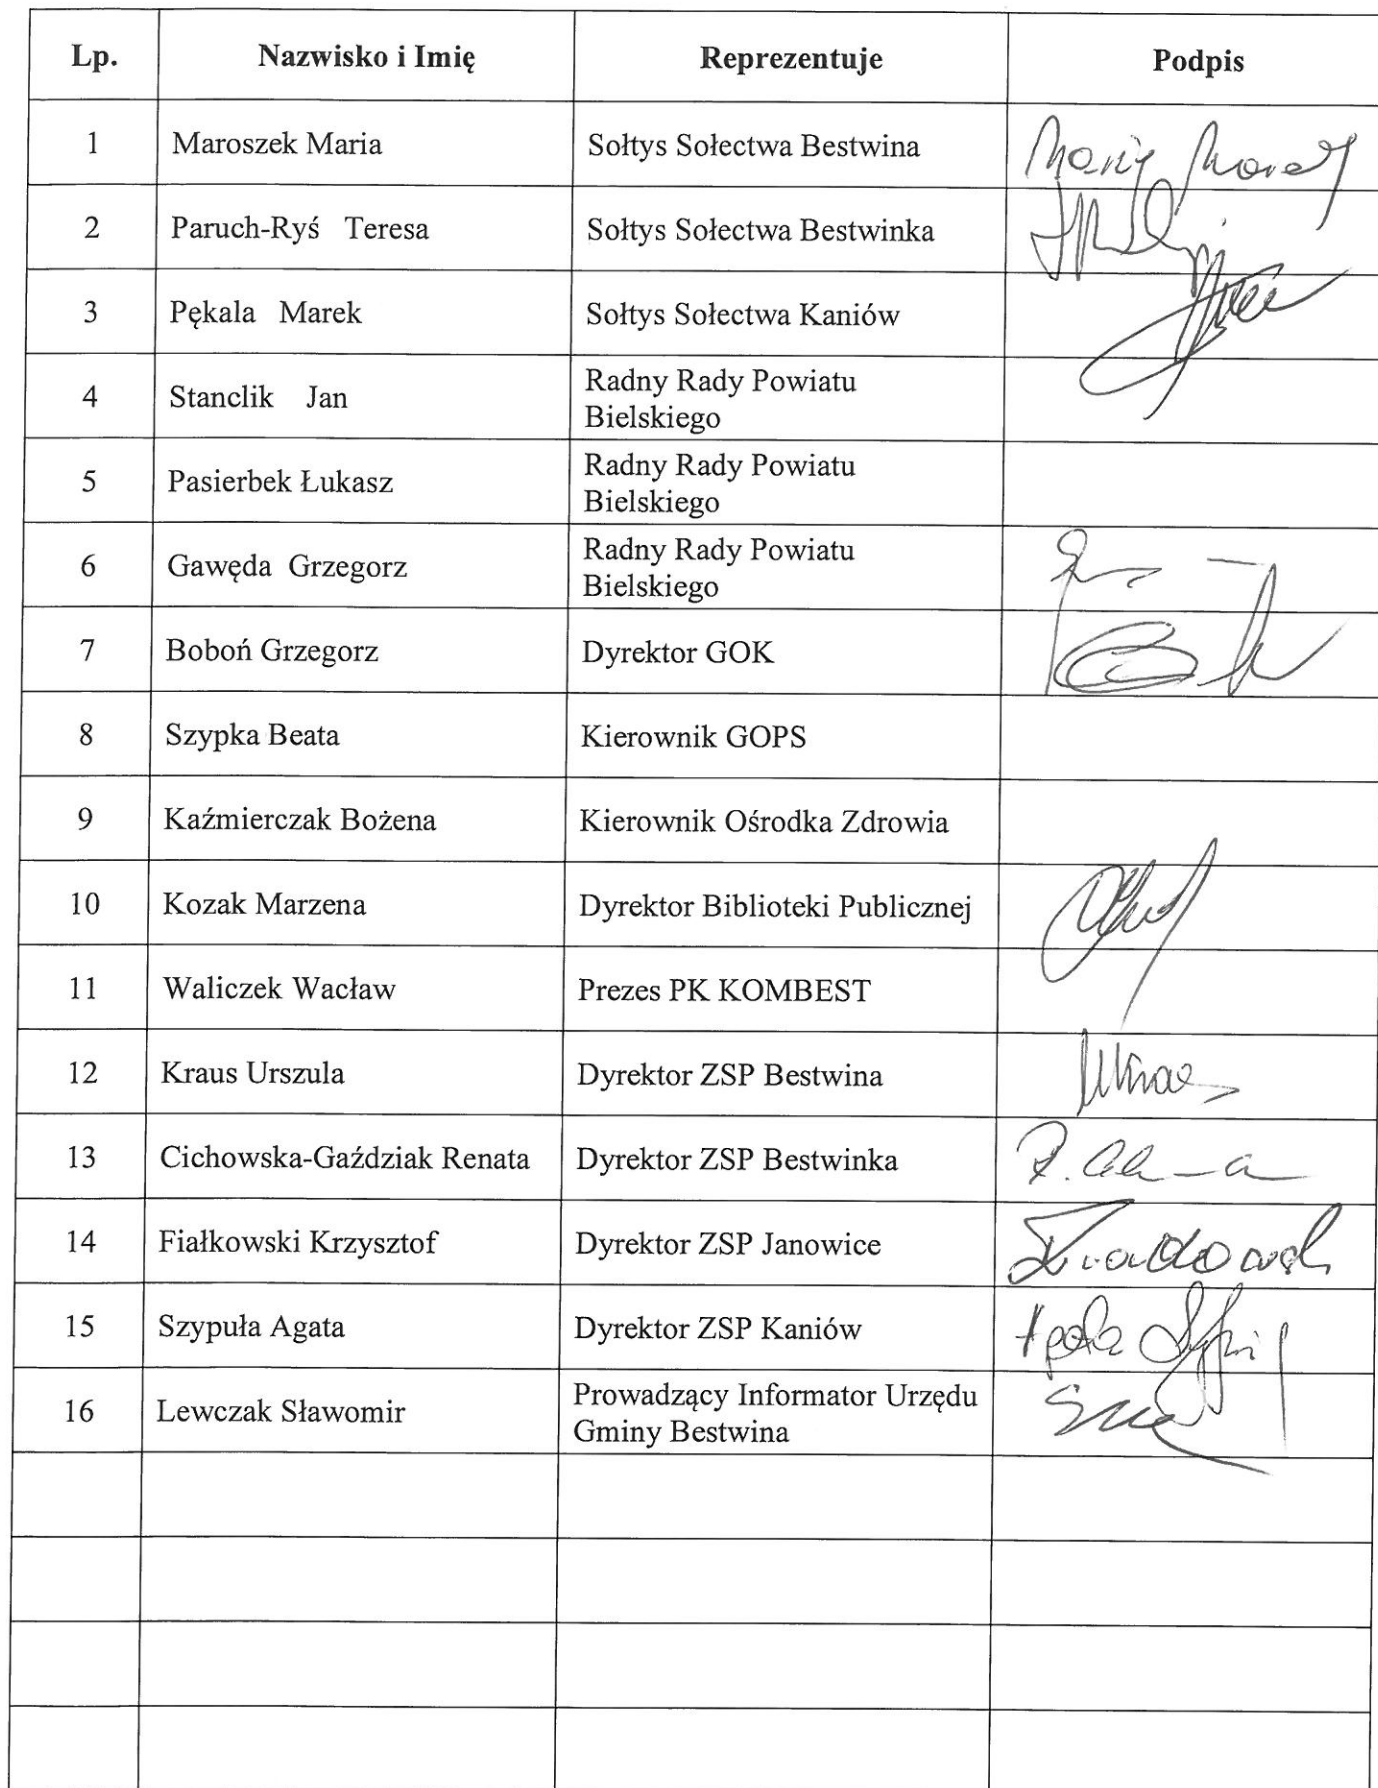 Lp. Nazwisko i Imię Reprezentuje Podpis
1 Maroszek Maria Sołtys Sołectwa Bestwina
2 Paruch-Ryś Teresa Sołtys Sołectwa Bestwinka
3 Pękala Marek Sołtys Sołectwa Kaniów
4 Stanclik Jan Radny Rady Powiatu
Bielskiego
5 Pasierbek Łukasz Radny Rady Powiatu
Bielskiego
6 Gawęda Grzegorz Radny Rady Powiatu
Bielskiego
7 Boboń Grzegorz Dyrektor GOK
8 Szypka Beata Kierownik GOPS
9 Kaźmierczak Bożena Kierownik Ośrodka Zdrowia
10 Kozak Marzena Dyrektor Biblioteki Publicznej
11 Waliczek Wacław Prezes PK KOMBEST
12 Kraus Urszula Dyrektor ZSP Bestwina
13 Cichowska-Gaździak Renata Dyrektor ZSP Bestwinka
14 Fiałkowski Krzysztof Dyrektor ZSP Janowice
15 Szypuła Agata Dyrektor ZSP Kaniów
16 Lewczak Sławomir Prowadzący Informator Urzędu
Gminy Bestwina